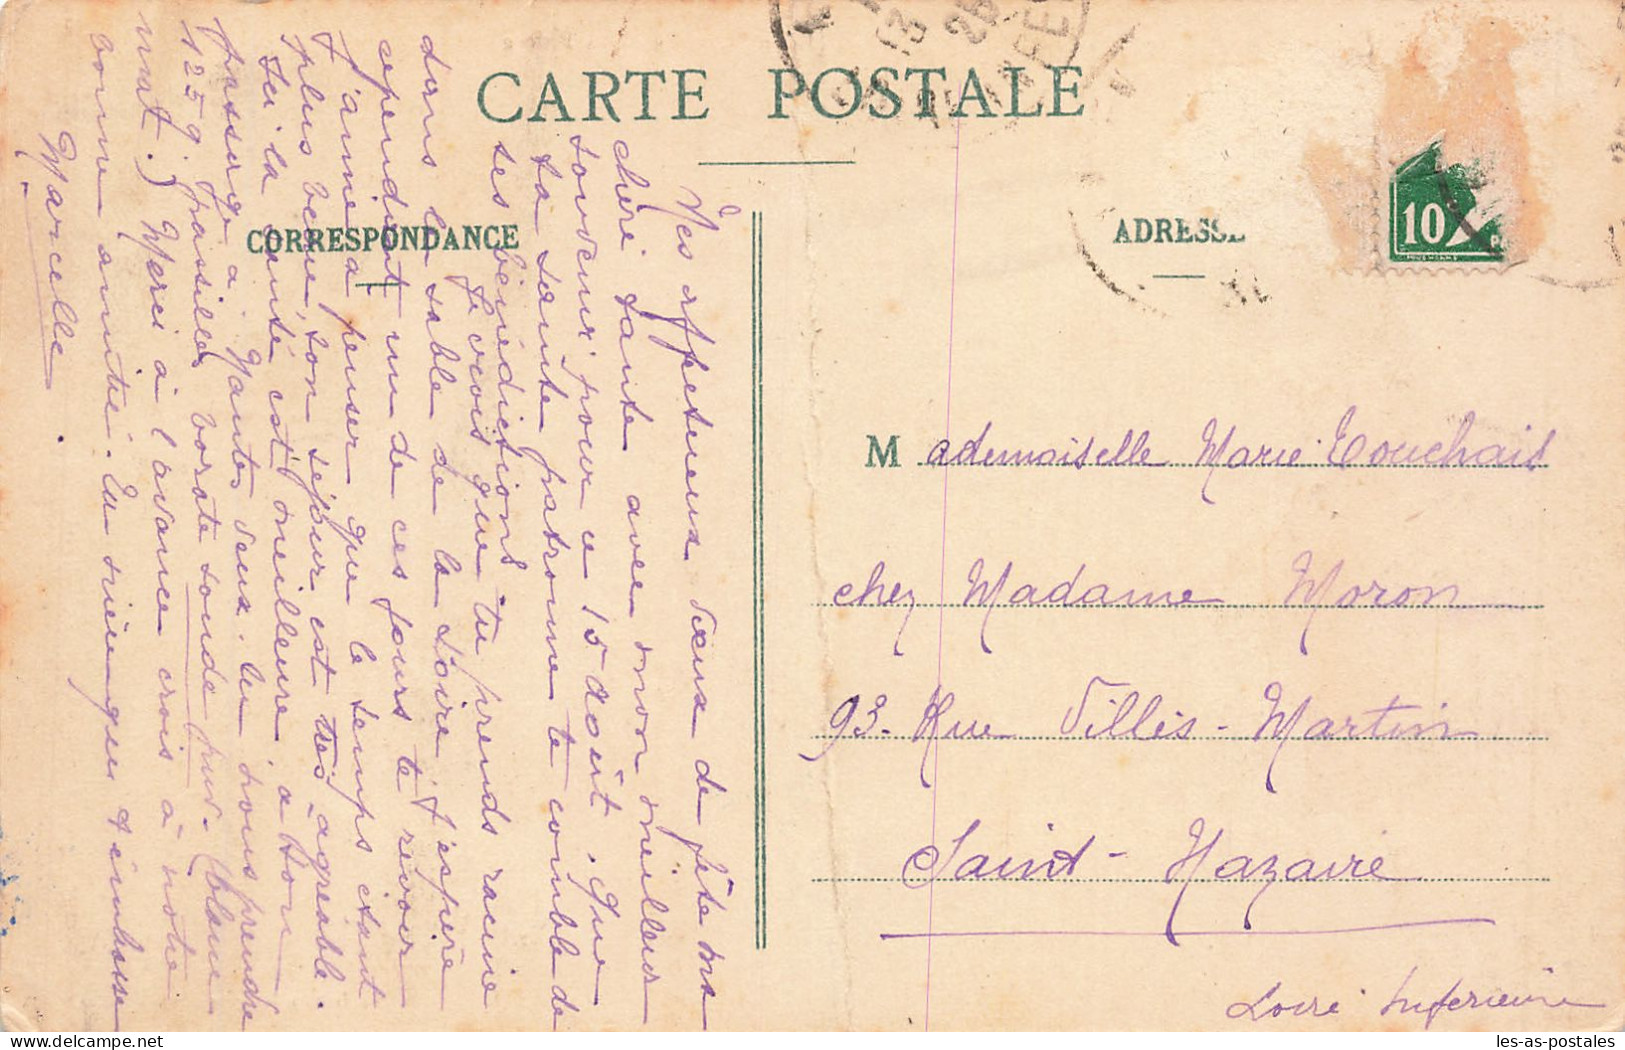 CARTE POSTALE
CORRESPONDANCE
ADRESSE
10
Mes affectueux vœux de fête ma
chère tante avec mon meilleur
souvenir pour ce 15 août. Que
ta sainte patronne te comble de
ses bénédictions.
Je crois que tu prends racine
dans le sable de la Loire, j'espère
cependant un de ces jours te revoir
J'aime à penser que le temps étant
plus beau, ton séjour est très agréable.
Si la santé est meilleure, à ton
passage à Nantes veux-tu nous prendre
125 g. pastilles borate soude pur. blanc
Merci à l'avance crois à notre
bonne amitié. En
Marcelle.
Mademoiselle Marie Touchais
chez Madame Moron
93. Rue Villès-Martin
Saint-Nazaire
Loire Inférieure
les-as-postales